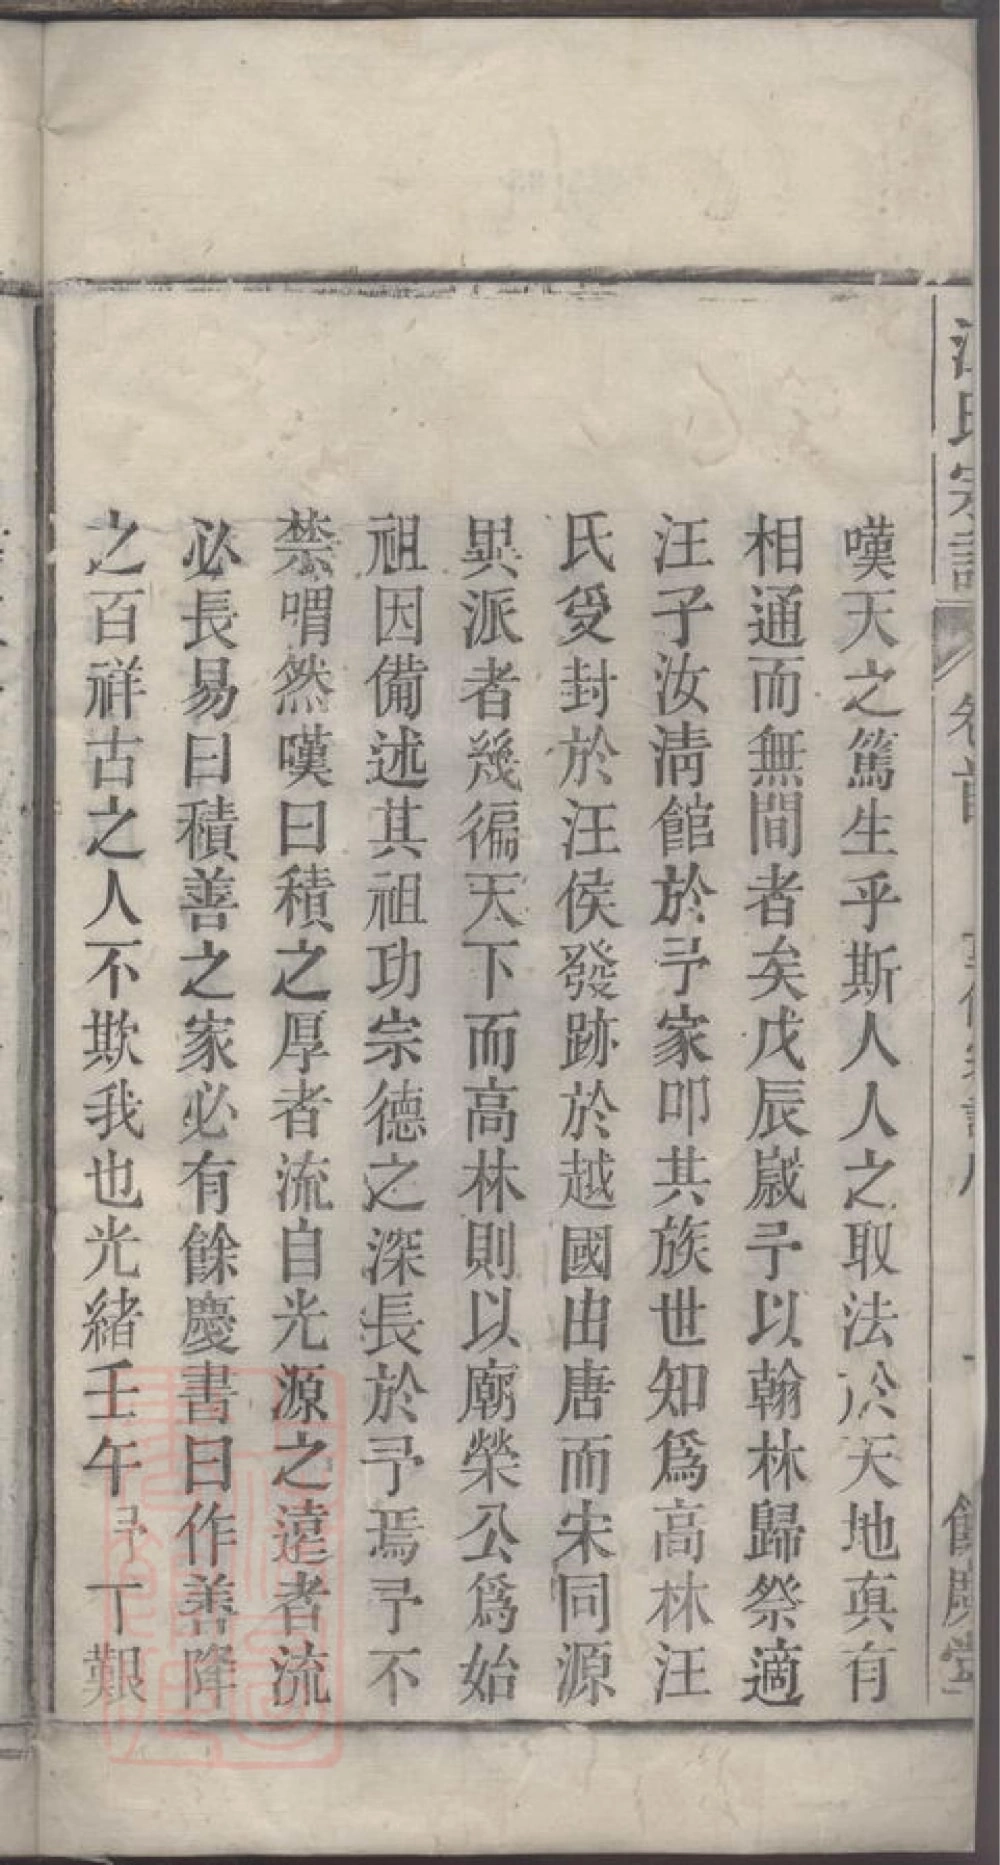 嘆天之篤生乎斯人人之取法於天地眞有
相通而無間者矣戊辰嵗予以翰林歸祭適
汪子汝淸館於予家叩其族世知爲高林汪
氏受封於汪侯發跡於越國由唐而宋同源
異派者幾徧天下而高林則以廟榮公爲始
祖因備述其祖功宗德之深長於予焉予不
禁喟然嘆曰積之厚者流自光源之遠者流
必長易曰積善之家必有餘慶書曰作善降
之百祥古之人不欺我也光緒壬午予丁艱